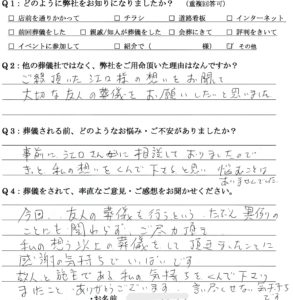 Q1：どのように弊社をお知りになりましたか？（重複回答可）
□ 店前を通りかかって □ チラシ □ 道路看板 □ インターネット
□ 前回葬儀をした □ 親戚/知人が葬儀をした □ 会葬にきて □ 評判をきいて
□ イベントに参加して □ 紹介で（ 様） ☑ その他
Q2：他の葬儀社ではなく、弊社をご用命頂いた理由はなんですか？
ご縁頂いた江口様の想いをお聞して
大切な友人の葬儀をお願いしたいと思いました
Q3：葬儀される前、どのようなお悩み・ご不安がありましたか？
事前に江口さんに相談しておりましたので
きっと私の想いをくんで下さると思い 悩むことは
ありませんでした。
Q4：葬儀をされて、率直なご意見・ご感想をお聞かせください。
今回、友人の葬儀を行うという、たぶん異例の
ことにも関わらず、ご尽力頂き
私の想う以上の葬儀をして頂きましたことに
感謝の気持ちでいっぱいです
故人と喪主である私の気持ちをくんで下さり
ありがとうございます 言い尽くせない気持ち
です
お名前